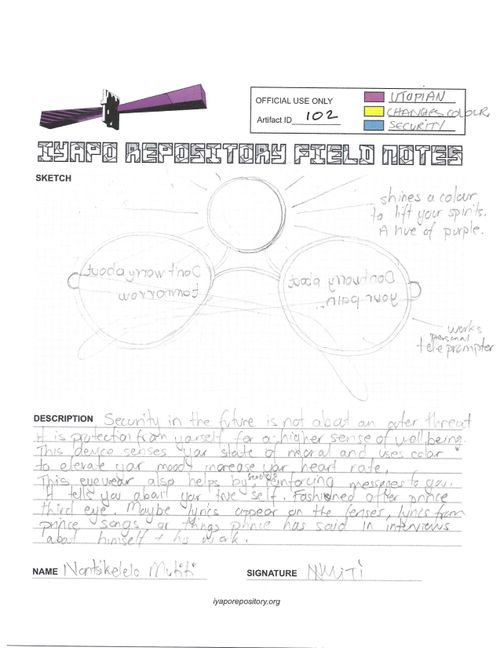 OFFICIAL USE ONLY
Artifact ID 102
UTOPIAN
CHANGES COLOUR,
SECURITY
IYAPO REPOSITORY FIELD NOTES
SKETCH
shines a colour
to lift your spirits.
A hue of purple.
Don't worry about
tomorrow
Don't worry about
your
works
personal
teleprompter
DESCRIPTION Security in the future is not about an outer threat
it is protection from yourself for a higher sense of well being.
This device senses your state of moral and uses color
to elevate your mood, increase your heart rate.
This eyewear also helps by reinforcing messages to you.
It tells you about your true self. Fashioned after prince
third eye. Maybe lyrics appear on the lenses, lyrics from
prince songs or things prince has said in interviews
about himself + his work.
NAME Nontsikelelo Mutiti
SIGNATURE NMuTi
iyaporepository.org